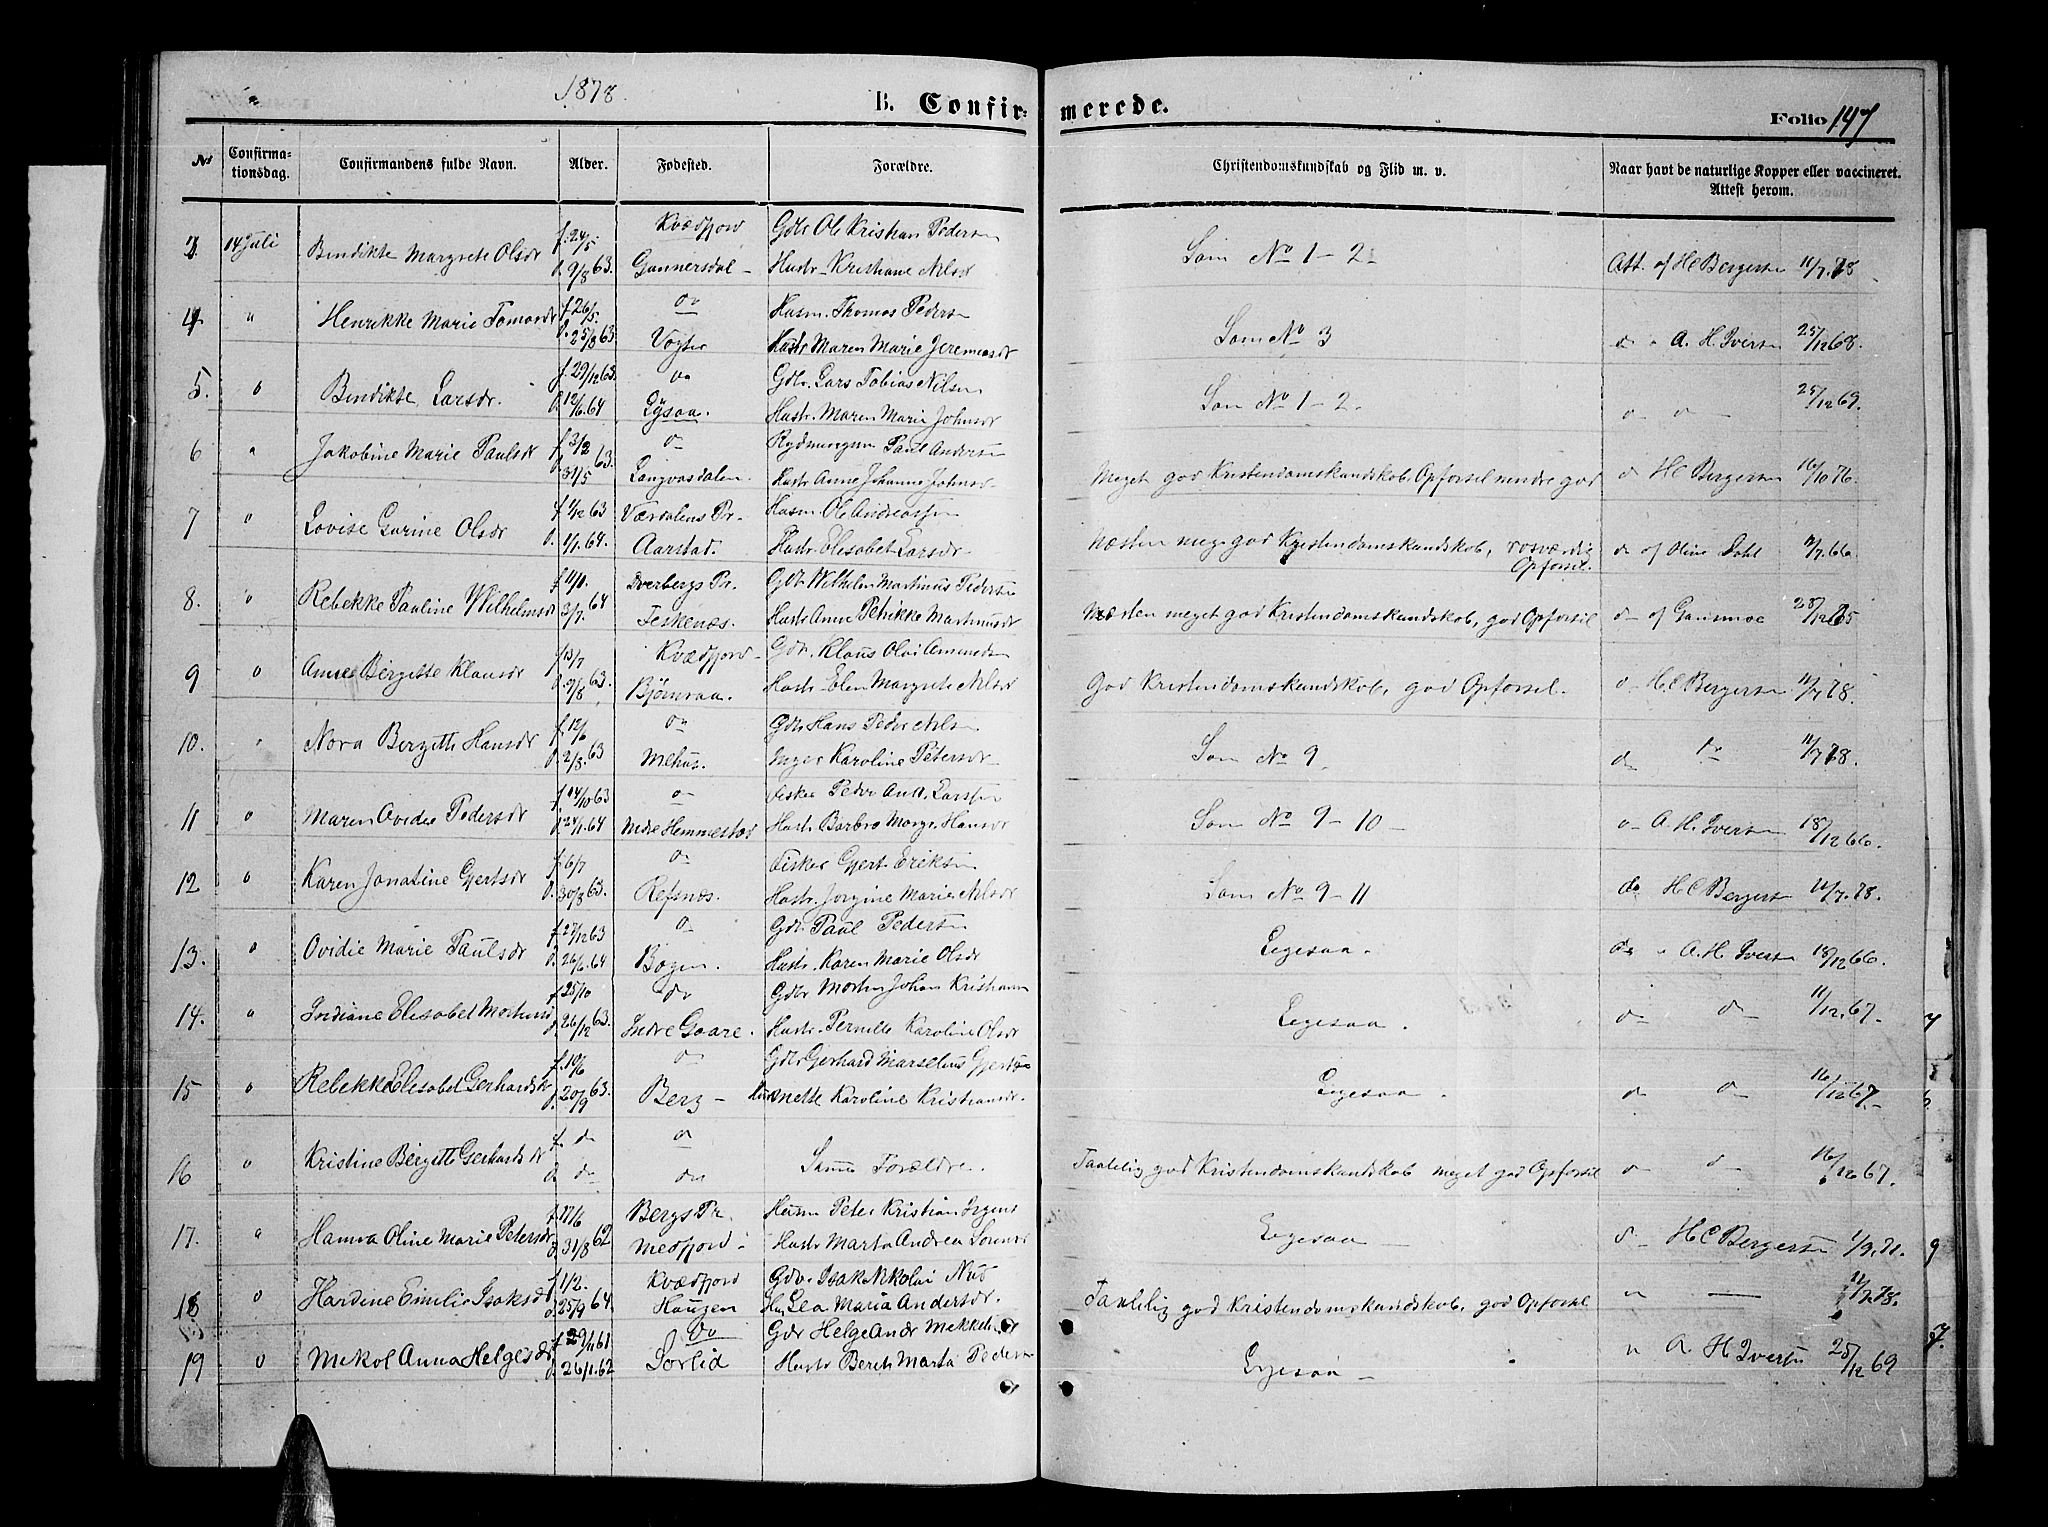 1878.
B. Confirmerede.
Folio 147
No
Confirmationsdag.
Confirmandens fulde Navn.
Alder.
Fødested.
Forældre.
Christendomskundskab og Flid m. v.
Naar havt de naturlige Kopper eller vaccineret. Attest herom.
3 14 Juli Bendikte Margrete Olsdr f. 24/5. d. 9/8 63. Kvædfjord Gunnersdal - Gdbr Ole Kristian Pedersen Hustr. Kristiane Nilsdr Som No 1-2 Att. af HC Bergersen 11/7.78
4 " Henrikke Marie Tomasdr f. 26/5. d. 25/8 63 do Vogter Husm. Thomas Pedersen Hustr Maren Marie Jeremiasdr Som No 3 do " A. H. Iversen 25/12 68.
5. " Bendikte Larsdr. f. 29/12 63. d. 12/6. 64 do Lysaa. Gdbr. Lars Tobias Nilsen Hustr. Maren Marie Johnsdr Som No 1-2. 25/12 69.
6 " Jakobine Marie Paulsdr f. 3/2 d. 31/5 63. do Langvasdalen. Rydningsm Paul Andersen Hustr Anne Johanne Johnsdr Meget god Kristendomskundskab, Opførsel mindre god do HC Bergersen 16/10 76.
7 " Lovise Gurine Olsdr f. 1/12 63 d. 1/1. 64. Værdalens Pr. Aarstad. Husm Ole Andreassen Hustr Elisabet Larsdr Næsten meget god Kristendomskundskab, rosværdig Opførsel. do af Oline Dahl 11/7.66
8. " Rebekke Pauline Wilhelmsdr 3/7. 64 Dverbergs Pr. Feskenæs. Gdbr Wilhelm Martinus Pedersen Hustr Anne Petrikke Martinusdr Næsten meget god Kristendomskundskab, god Opførsel do af Gausmoe 28/12 65
9 " Anne Bergitte Klausdr f. 13/7 d. 9/8 63. Kvædfjord Bjørnraa. Gdbr. Klaus Olai Amundsen Hustr Elen Margrete Nilsdr God Kristendomskundskab, god Opførsel. do HC Bergersen 11/7 78
10. " Nora Bergitte Hansdr f. 12/6 d. 2/8. 63 do Mehus. Gdbr Hans Peder Nilsen Inger Karoline Petersdr Som No 9. do do 11/7 78.
11 " Maren Ovidie Pedersdr f. 14/10 63 d. 24/1. 64 do Indre Hemmestad Fisker Peder And. Larssen Hustr Barbro Margr. Hansdr Som No 9-10 - do A. H. Iversen 18/12 66.
12 " Karen Jonatine Gjertsdr f. 6/7 d. 30/8 63. do Refsnæs. Fisker Gjert Eriksen Hustr. Jorgine Marie Nilsdr Som No 9-11 do HC Bergersen 11/7.78.
13. " Ovidie Marie Paulsdr f. 27/12 63 d. 26/6. 64 do Bogen. Gdbr Paul Pedersen Hustr. Karen Marie Olsdr Ligesaa. do " A. H. Iversen 18/12 66.
14. " Indiane Elisabet Mortensd f. 25/10 d. 26/12 63. do Indre Gaare. Gdbr Morten Johan Kristiansen Hustr. Pernille Karoline Olsdr Ligesaa. do do 11/12. 67.
15 " Rebekka Elisabet Gerhardsdr f. 10/6 d. 20/9 63. do Berg - Gdbr Gerhard Marselius Gjertsen Hustr Anette Karoline Kristiansdr. Ligesaa - do do 16/12 67. -
16 " Kristine Bergitte Gerhardsdr f. do d. do do do Samme Forældre. Taalelig god Kristendomskundskab meget god Opførsel do do 16/12 67.
17. " Hanna Oline Marie Petersdr f. 17/6 d. 31/8 62 Bergs Pr. Medfjord - Husm Peter Kristian Hustr Marta Andrea Ligesaa do HC Bergersen 1/9.71.
18 " Hardine Emilie Isaksdr f. 1/2. d. 25/9 64. Kvædfjord Haugen Gdbr. Isak Nikolai Hu Lea Maria Andersdr. Taalelig god Kristendomskundskab, god Opførsel " 11/7.78.
19 " Mekol Anna Helgesdr f. 29/11 61 d. 26/1. 62 Do Sorlid Gdbr Helge Andr Mekkelsen Hustr Berit Marta Pedersdr Ligesaa - " A. H. Iversen 25/12 69